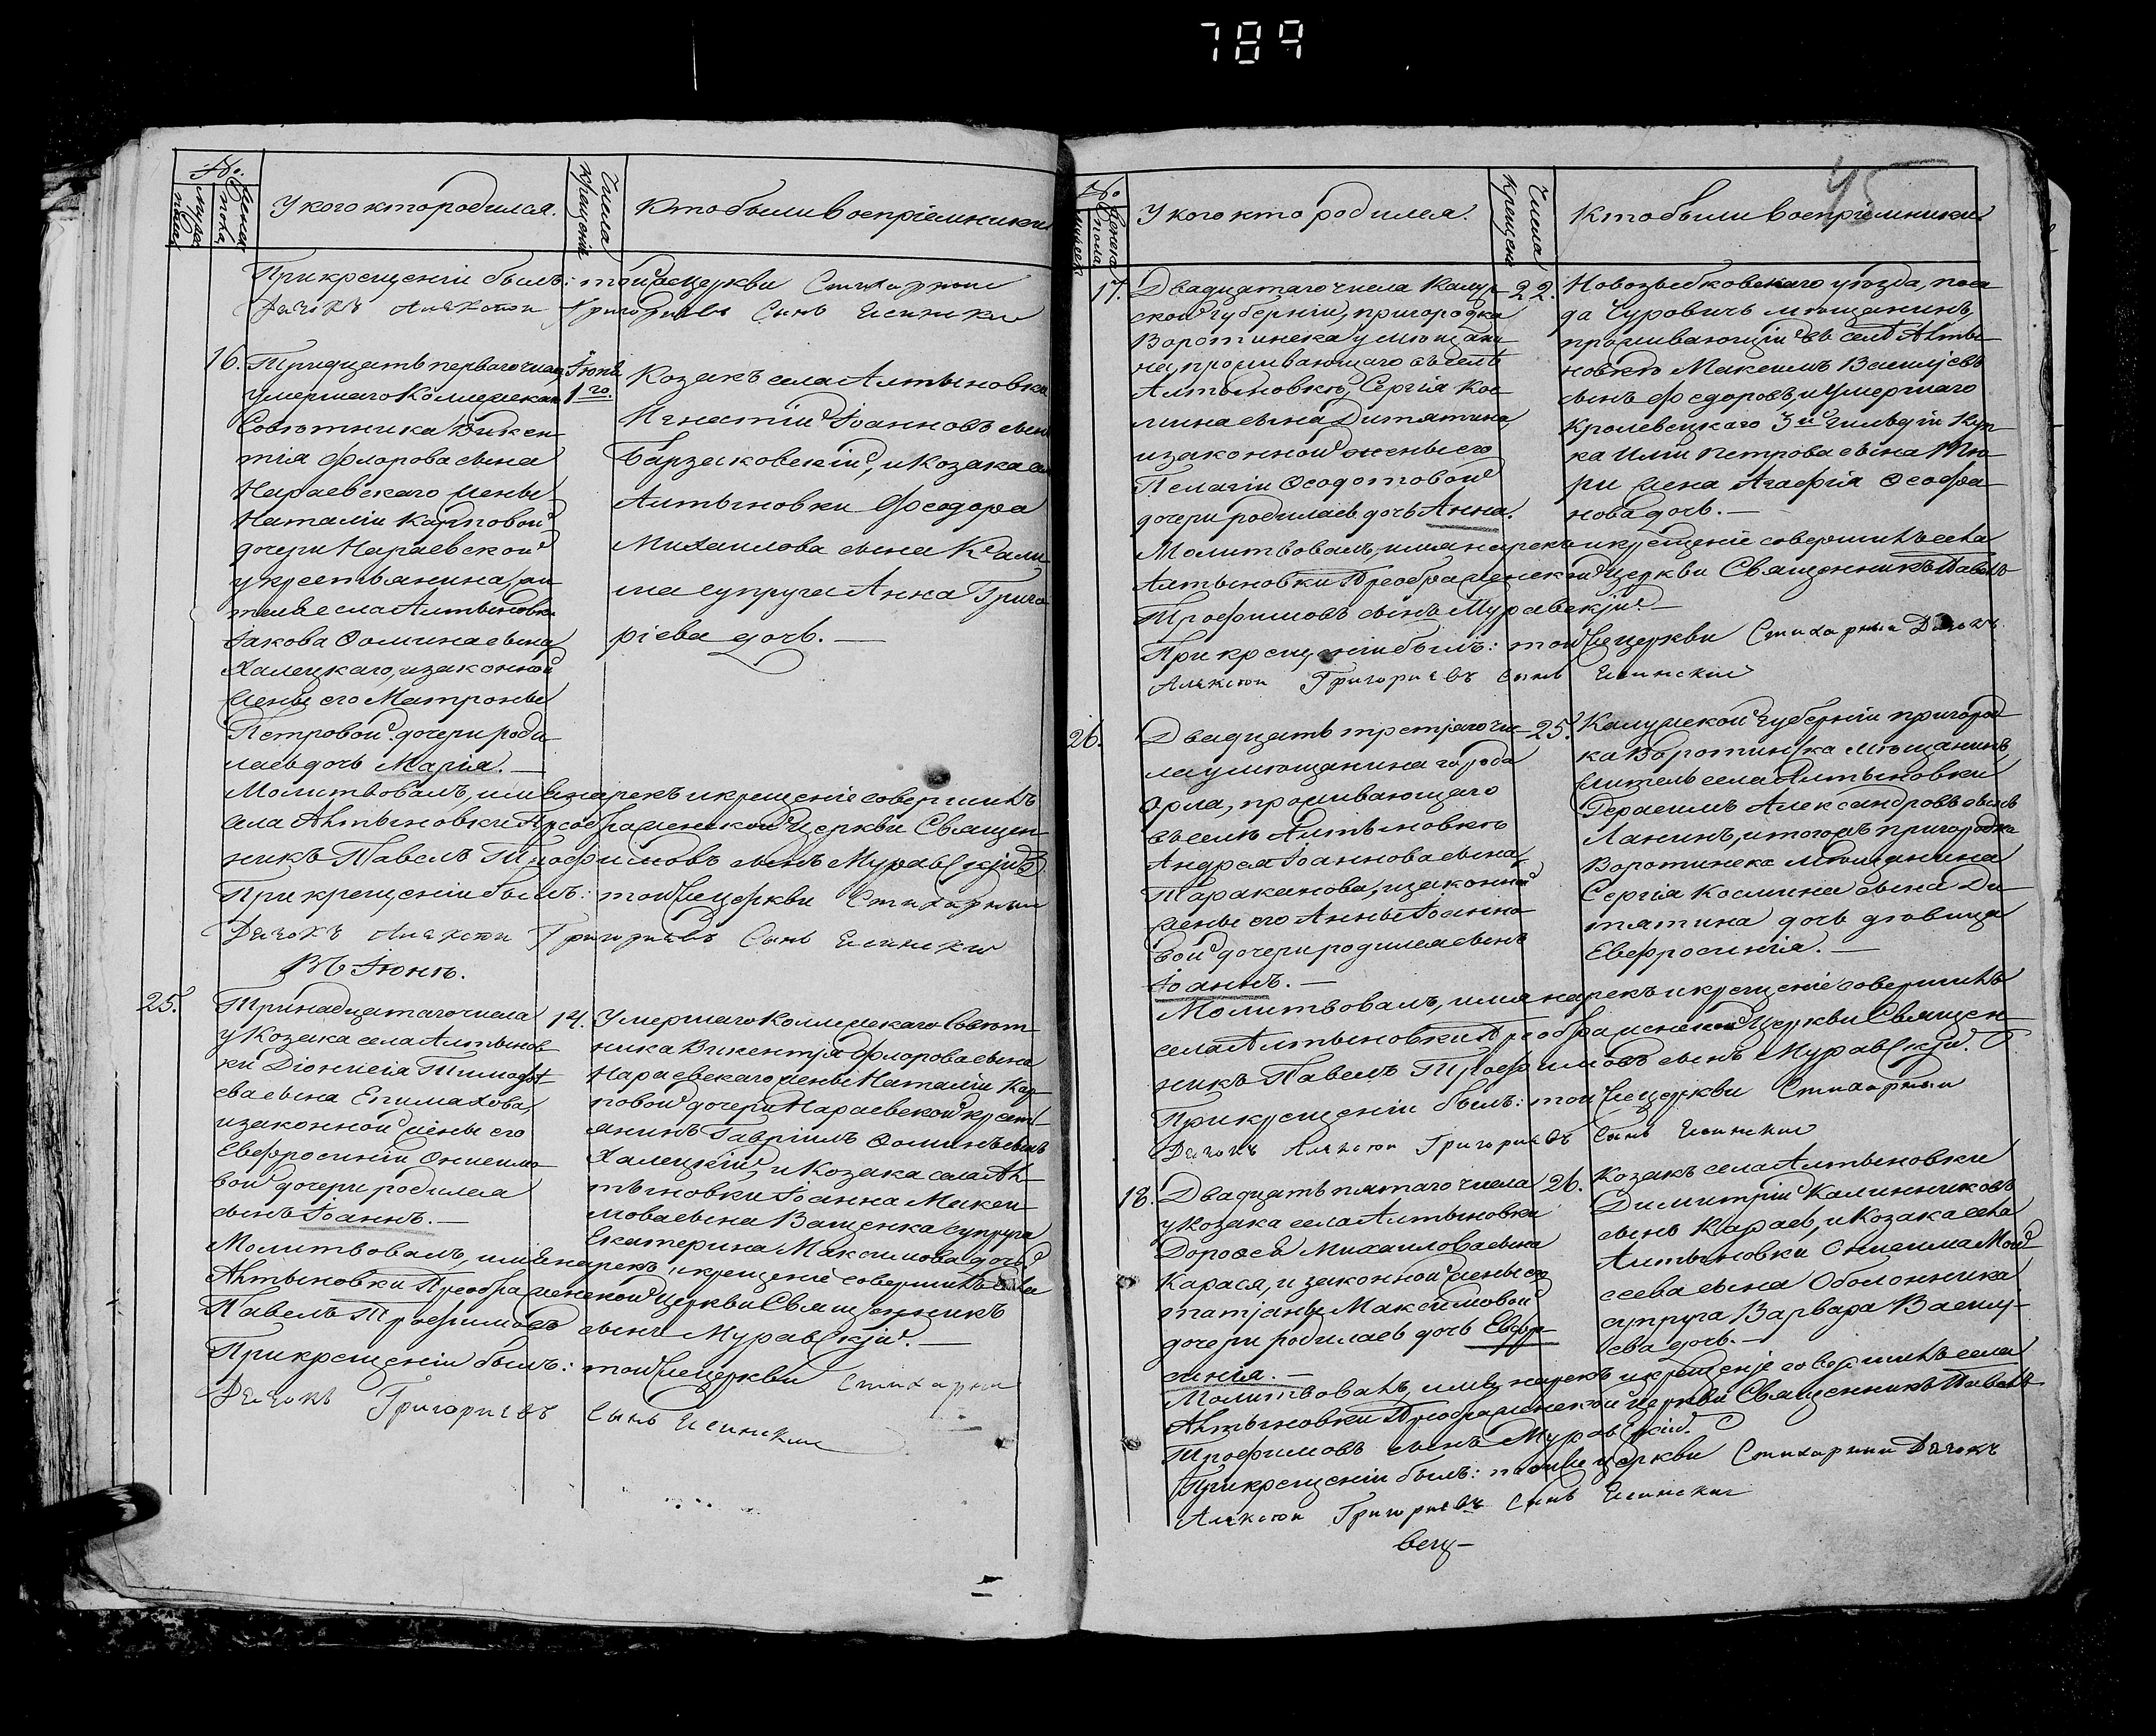 789
45
№
Мужеска
пола
Женска
У кого кто родился.
Числа
Крещенія
Кто были воспріемники
При крещеніи былъ: тойже церкви Стихарный
Дячокъ Алексѣй Григорьевъ Сынъ
16.
Тридцать перваго числа
умершаго Коллежскаго
Совѣтника Викен-
тія Флорова сына
Нараевскаго жены
Наталіи Карповой
дочери Нараевской
у крестьянина, жи-
теля села Алтыновки
Іакова Ѳомина сына
Халецкаго, и законной
жены его Матроны
Петровой дочери роди-
лась дочь Марія.
Іюнь
1го.
Козакъ села Алтыновки
Игнатій Іоанновъ сынъ
Барзаковскій, и Козака села
Алтыновки Феодора
Михаилова сына
супруга Анна Григо-
ріева дочь.
Молитвовалъ, имя нарекъ и крещеніе совершилъ
села Алтыновки Преображенской церкви Священ-
никъ Павелъ Трофимовъ сынъ Муравскій
При крещеніи былъ: тойже церкви Стихарный
Дячокъ Алексѣй Григорьевъ Сынъ
Въ Іюнѣ.
25.
Тринадцатаго числа
у Козака села Алтынов-
ки Діонисія Тимофѣ-
ева сына Епимахова,
и законной жены его
Евфросиніи Онисимо-
вой дочери родился
сынъ Іоаннъ.
14.
Умершаго Коллежскаго Совѣт-
ника Викентія Флорова сына
Нараевскаго жены Наталіи Кар-
повой дочери Нараевской крест-
янинъ Гавріилъ Ѳоминъ сынъ
Халецкій, и Козака села Ал-
тыновки Іоанна Макси-
мова сына Ващенка супруга
Екатерина Максимова дочь.
Молитвовалъ, имя нарекъ, и крещеніе совершилъ села
Алтыновки Преображенской церкви Священникъ
Павелъ Трофимовъ сынъ Муравскій.
При крещеніи былъ: тойже церкви Стихарный
Дячокъ Григорьевъ Сынъ
№
Женска
пола
Мужеск
У кого кто родился.
Числа
Крещенія
Кто были воспріемники
17.
Двадцатаго числа Калуж-
ской губерніи, пригородка
Воротинска у мѣщани-
на, проживающаго въ селѣ
Алтыновкѣ, Сергія Кос-
мина сына Дитятина
и законной жены его
Пелагіи Ѳеодотовой
дочери родилась дочь Анна.
22.
Новозыбковскаго уѣзда, поса-
да Чуровичъ мѣщанинъ,
проживающій въ селѣ Алты-
новкѣ Максимъ Василіевъ
сынъ Федоровъ, и умершаго
Кролевецкаго 3й гильдіи Куп-
ца Иліи Петрова сына
жена Агафія Ѳеофа-
нова дочь.
Молитвовалъ, имя нарекъ и крещеніе совершилъ села
Алтыновки Преображенской церкви Священникъ Павелъ
Трофимовъ сынъ Муравскій
При крещеніи былъ: тойже церкви Стихарный Дячокъ
Алексѣй Григорьевъ Сынъ
26.
Двадцать третяго чи-
сла у мѣщанина города
Орла, проживающаго
въ селѣ Алтыновкѣ
Андрея Іоаннова сына
Тараканова, и законной
жены его Анны Іоанно-
вой дочери родился сынъ
Іоаннъ.
25.
Калужской губерніи пригород-
ка Воротинска мѣщанинъ,
житель села Алтыновки
Герасимъ Александровъ сынъ
Ланинъ, и тогожъ пригородка
Воротинска мѣщанина
Сергія Космина сына Ди-
тятина дочь дѣвица
Евфросинія.
Молитвовалъ, имя нарекъ и крещеніе совершилъ
села Алтыновки Преображенской церкви Священ-
никъ Павелъ Трофимовъ сынъ Муравскій.
При крещеніи былъ: тойже церкви Стихарный
Дячокъ Алексѣй Григорьевъ Сынъ
18.
Двадцать пятаго числа
у Козака села Алтыновки
Дорофея Михаилова сына
Карася, и законной жены его
Татіаны Максимовой
дочери родилась дочь Евфро-
синія.
26.
Козакъ села Алтыновки
Димитрій Калинниковъ
сынъ Карась, и Козака села
Алтыновки Онисима Мой-
сеева сына Оболонника
супруга Варвара Васили-
ева дочь.
Молитвовалъ, имя нарекъ и крещеніе совершилъ села
Алтыновки Преображенской церкви Священникъ Павелъ
Трофимовъ сынъ Муравскій.
При крещеніи былъ: тойже церкви Стихарный Дячокъ
Алексѣй Григорьевъ Сынъ